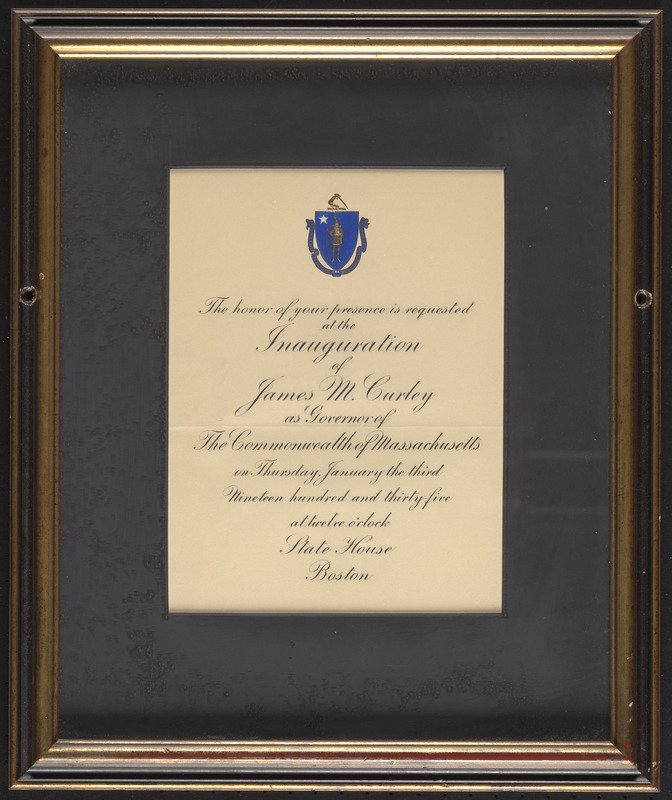 The honor of your presence is requested
at the
Inauguration
of
James M. Curley
as Governor of
The Commonwealth of Massachusetts
on Thursday, January the third
Nineteen hundred and thirty-five
at twelve o'clock
State House
Boston